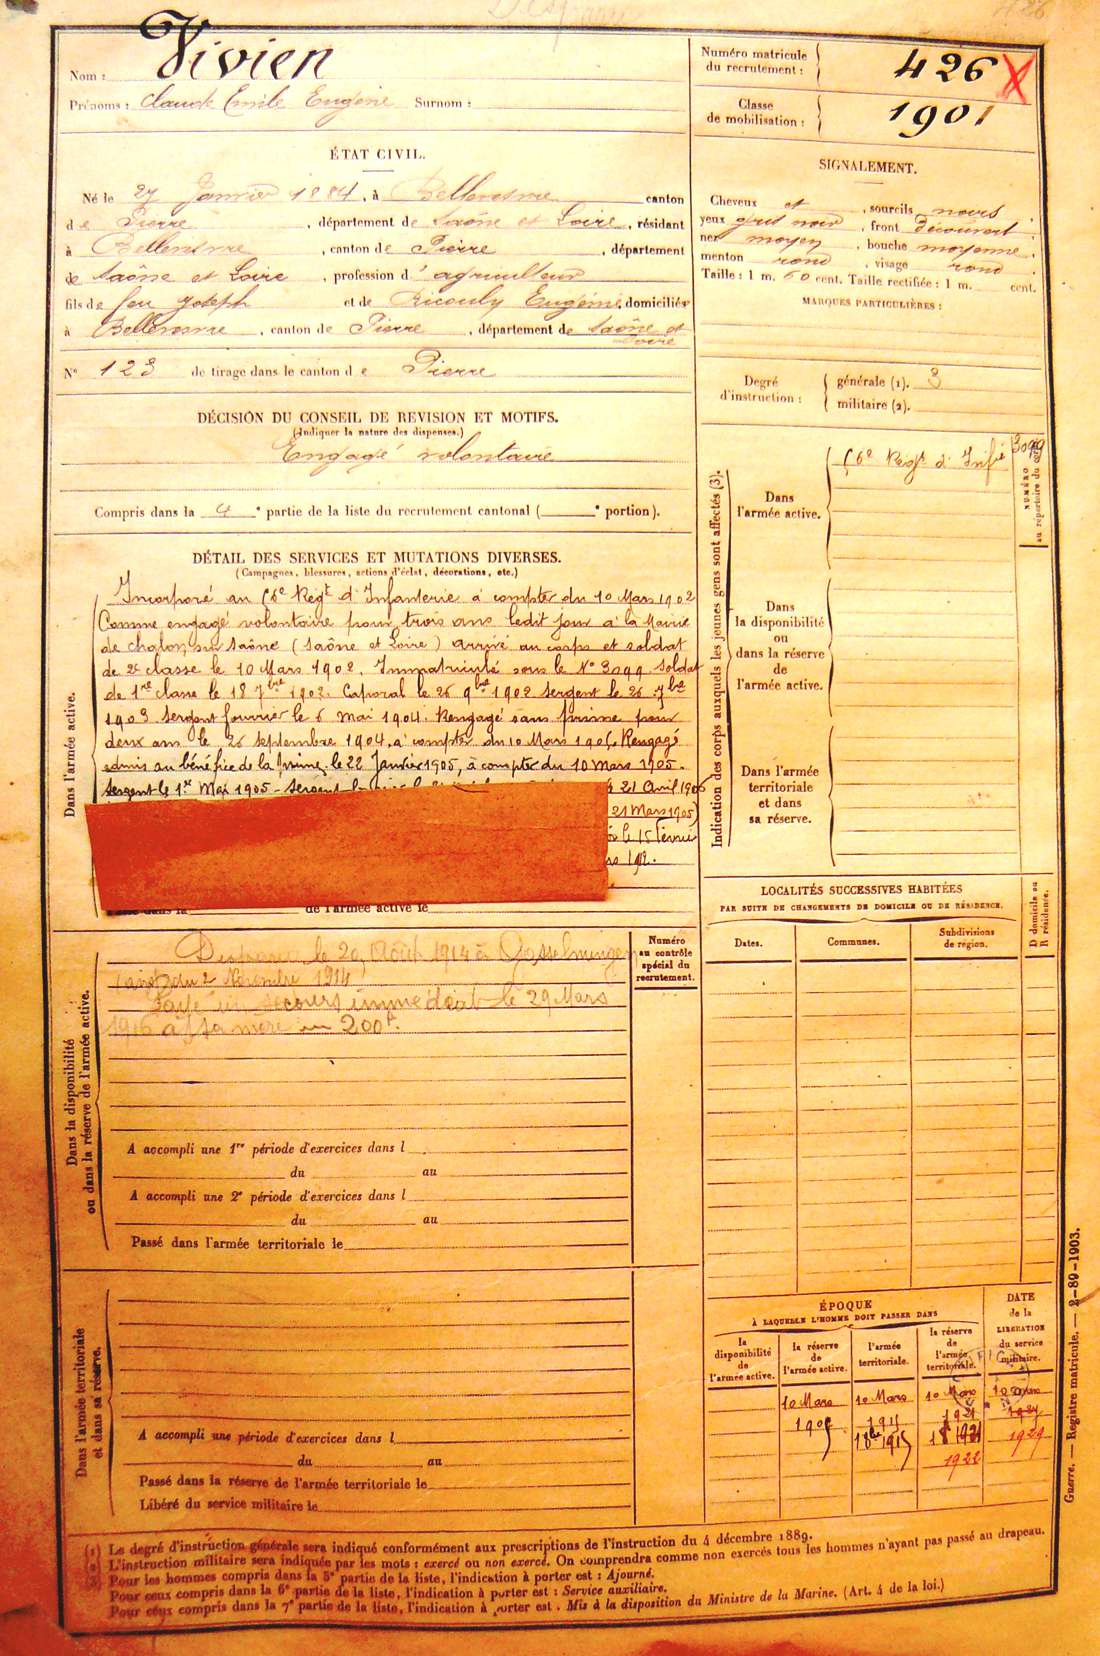 426
Nom : Vivien
Prénoms : Claude Emile Eugène Surnom :
Numéro matricule du recrutement : 426
Classe de mobilisation : 1901
ÉTAT CIVIL.
Né le 27 Janvier 1884, à Bellevesvre canton
de Pierre, département de Saône et Loire, résidant
à Bellevesvre, canton de Pierre, département
de Saône et Loire, profession d'agriculteur
fils de feu Joseph et de Ricouly Eugénie, domiciliés
à Bellevesvre, canton de Pierre, département de Saône et
Loire
N° 123 de tirage dans le canton de Pierre
SIGNALEMENT.
Cheveux et, sourcils noirs,
yeux gris noir, front découvert,
nez moyen, bouche moyenne,
menton rond, visage rond.
Taille : 1 m. 60 cent. Taille rectifiée : 1 m. cent.
MARQUES PARTICULIÈRES :
Degré d'instruction :
générale (1). 3
militaire (2).
DÉCISION DU CONSEIL DE REVISION ET MOTIFS.
(Indiquer la nature des dispenses.)
Engagé volontaire
Compris dans la 4e partie de la liste du recrutement cantonal (e portion).
DÉTAIL DES SERVICES ET MUTATIONS DIVERSES.
(Campagnes, blessures, actions d'éclat, décorations, etc.)
Dans l'armée active.
Incorporé au 56e Régt d'Infanterie à compter du 10 Mars 1902
Comme engagé volontaire pour trois ans ledit jour à la Mairie
de chalon sur Saône (Saône et Loire) arrivé au corps et soldat
de 2e classe le 10 Mars 1902. Immatriculé sous le N° 3099. Soldat
de 1re classe le 18 7bre 1902. Caporal le 26 9bre 1902 Sergent le 26 7bre
1903 Sergent fourrier le 6 mai 1904. Rengagé sans prime pour
deux ans le 26 septembre 1904, à compter du 10 Mars 1905. Rengagé
admis au bénéfice de la prime le 22 Janvier 1905, à compter du 10 mars 1905.
Sergent le 1er Mai 1905 - Sergent
21 Avril 1906
21 Mars 1905)
le 15 Février
Passé dans la de l'armée active le
Indication des corps auxquels les jeunes gens sont affectés (3).
Dans l'armée active.
56e Régt d'Infie
3099
NUMÉRO au répertoire du corps
Dans la disponibilité ou dans la réserve de l'armée active.
Dans l'armée territoriale et dans sa réserve.
LOCALITÉS SUCCESSIVES HABITÉES
PAR SUITE DE CHANGEMENTS DE DOMICILE OU DE RÉSIDENCE.
Dates. Communes. Subdivisions de région. D domicile ou R résidence.
Dans la disponibilité ou dans la réserve de l'armée active.
Numéro au contrôle spécial du recrutement.
Disparu le 20 Août 1914 à
du 2 Novembre 1914
Payé un secours immédiat le 29 Mars
1916 à sa mère 200f.
A accompli une 1re période d'exercices dans l
du au
A accompli une 2e période d'exercices dans l
du au
Passé dans l'armée territoriale le
Dans l'armée territoriale et dans sa réserve.
A accompli une période d'exercices dans l
du au
Passé dans la réserve de l'armée territoriale le
Libéré du service militaire le
ÉPOQUE
À LAQUELLE L'HOMME DOIT PASSER DANS
DATE de la LIBÉRATION du service militaire.
la disponibilité de l'armée active.
la réserve de l'armée active.
l'armée territoriale.
la réserve de l'armée territoriale.
10 Mars 10 Mars 10 Mars 10 Mars
1921 1927
1915 1921 1929
1922
Guerre. — Registre matricule. — 2-89-1903.
(1) Le degré d'instruction générale sera indiqué conformément aux prescriptions de l'instruction du 4 décembre 1889.
(2) L'instruction militaire sera indiquée par les mots : exercé ou non exercé. On comprendra comme non exercés tous les hommes n'ayant pas passé au drapeau.
(3) Pour les hommes compris dans la 5e partie de la liste, l'indication à porter est : Ajourné.
Pour ceux compris dans la 6e partie de la liste, l'indication à porter est : Service auxiliaire.
Pour ceux compris dans la 7e partie de la liste, l'indication à porter est : Mis à la disposition du Ministre de la Marine. (Art. 4 de la loi.)